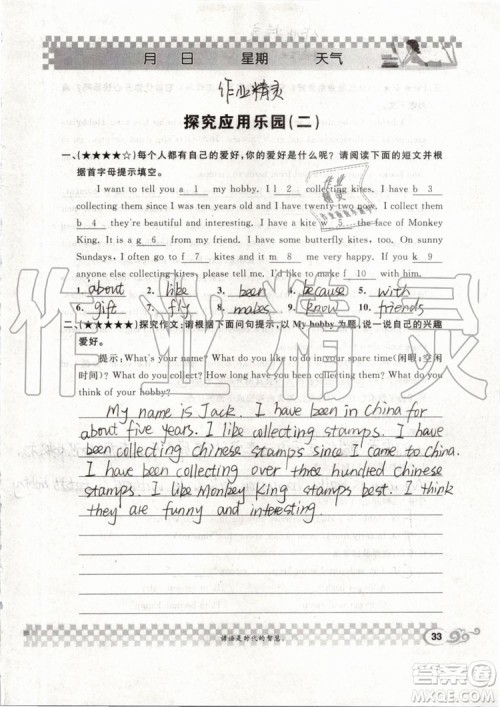 月 日 星期 天气
作业精灵
探究应用乐园(二)
一、(★★★★☆)每个人都有自己的爱好,你的爱好是什么呢?请阅读下面的短文并根
据首字母提示填空。
I want to tell you a 1 my hobby. I l 2 collecting kites. I have b 3
collecting kites since I was eleven years old and I have twenty-two now. I collect
them b 4 they're beautiful and interesting. I have a kite w 5 the face of Monkey
King. It is a g 6 from my parents. I have some butterfly kites, too. On sunny
Sundays, I often f 7 them in the park. It m 8 me happy. If you k 9
anyone else collecting kites, please tell me. I would like to make f 10 with him/her.
1. about 2. like 3. been 4. because 5. with
6. gift 7. fly 8. makes 9. know 10. friends
二、(★★★★★)探究作文:请根据下面问句提示,以 My hobby 为题,说一说自己的兴趣
爱好。
提示:What's your name? What do you like doing in your spare time(闲暇;空闲
时间)? What do you collect? How long have you been collecting them? What do you
think of your hobby?
My name is Jack. I have been in China for
about five years. I like collecting stamps. I have
been collecting chinese stamps since I came to China.
I have been collecting over three hundred chinese
stamps. I like Monkey King stamps best. I think
they are funny and interesting.
谚语是时代的智慧。
33
作业精灵
答案圈
MXQE.COM